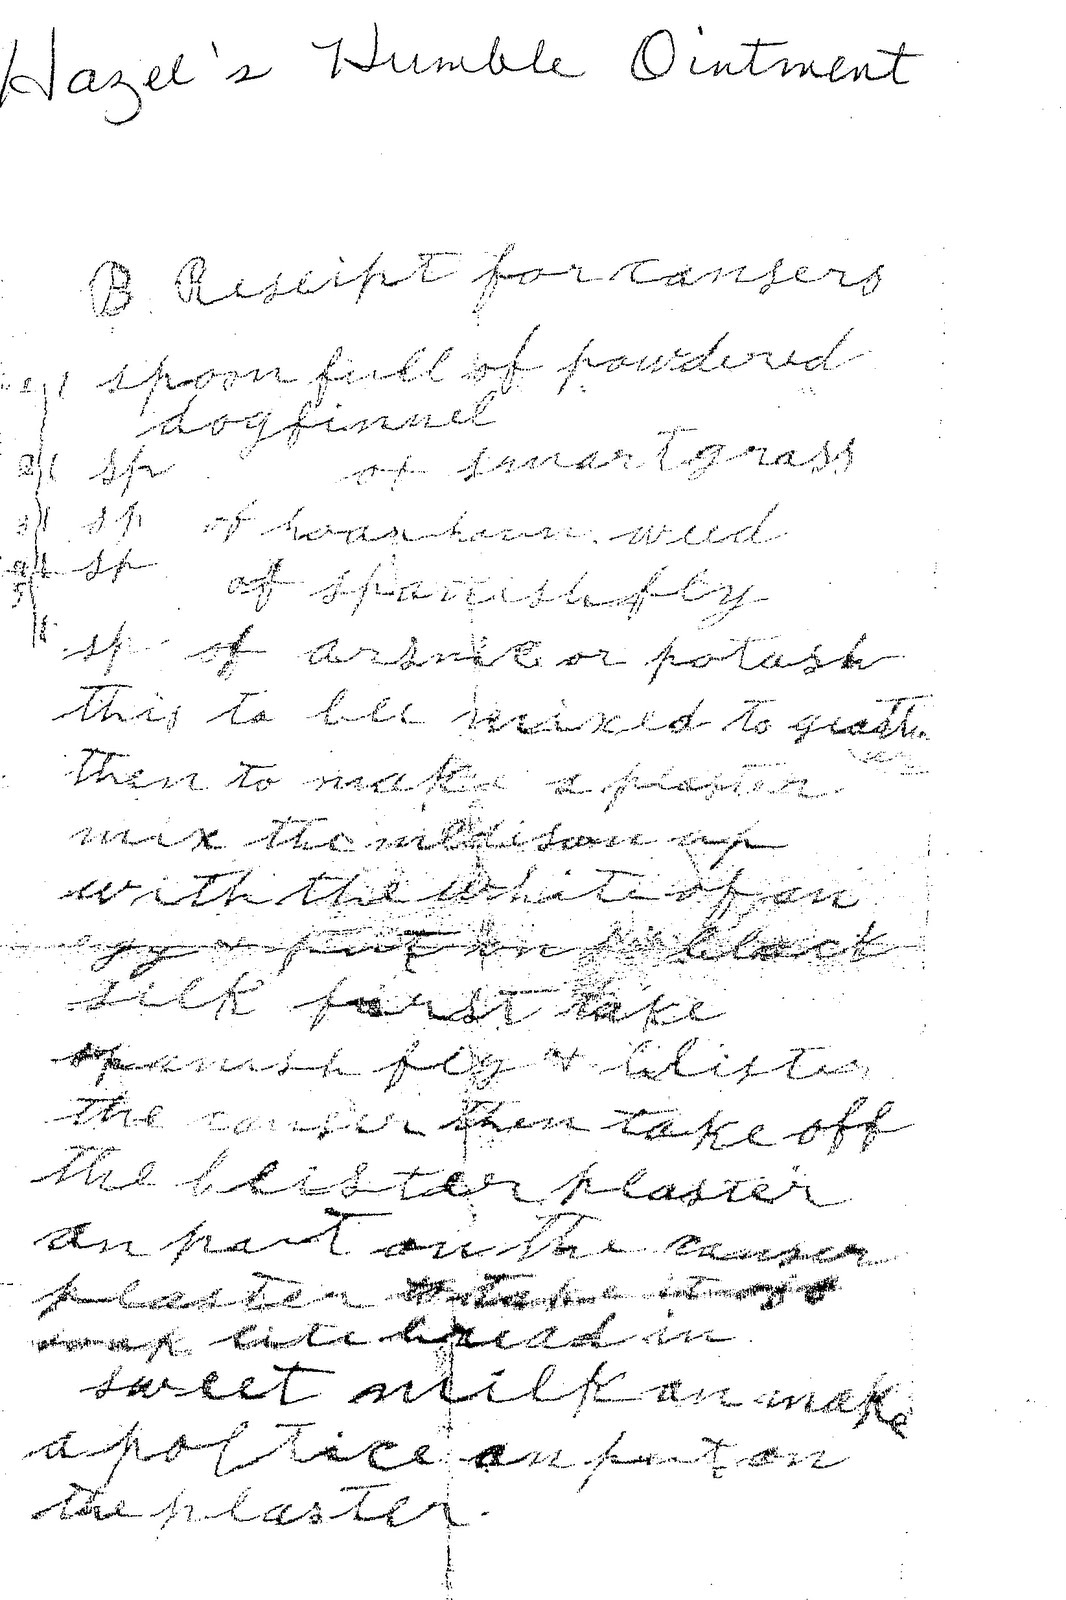 Hazel's Humble Ointment
B Reseipt for cansers
1 spoon full of powdered
dogfinnel
2 1 sp of smartgrass
3 1 sp of hoarhoun weed
4 1 sp of spanish fly
5 1 sp of arsnic or potash
this to bee mixed to geather
then to make a plaster
mix the medison up
with the white of an
egg & put on black
silk first take
spanish fly & blister
the canser then take off
the bleister plaster
an part on the canser
plaster take it
soak lite bread in
sweet milk an make
a poltice an put on
the plaster.